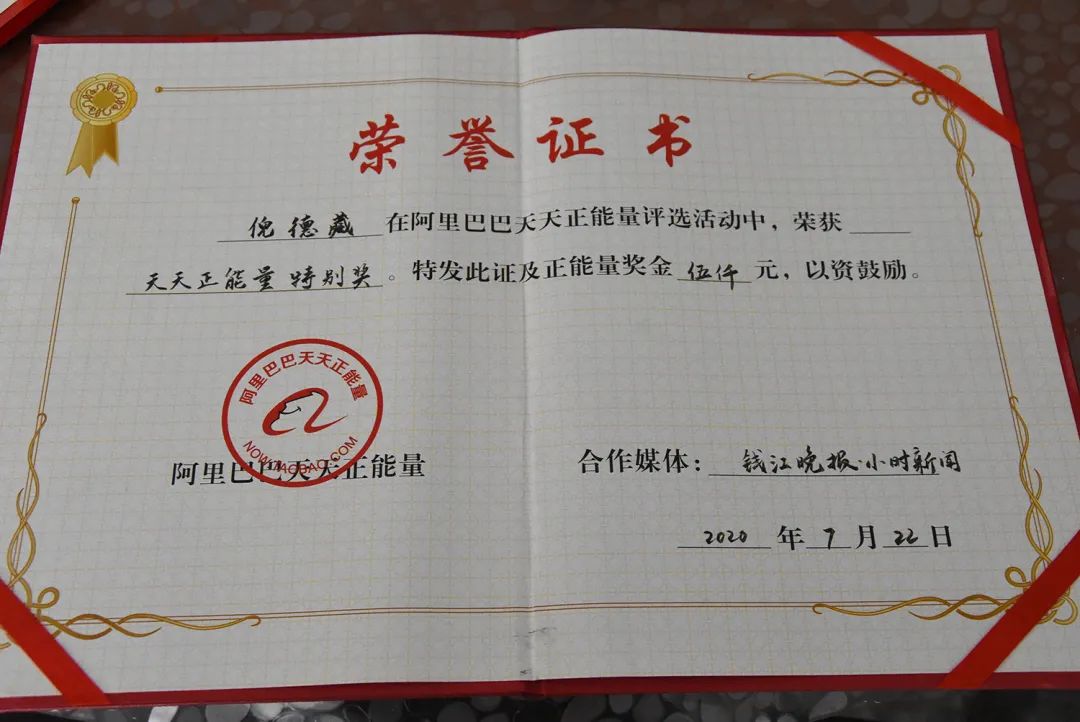 荣誉证书
倪德藏在阿里巴巴天天正能量评选活动中，荣获
天天正能量特别奖。特发此证及正能量奖金伍仟元，以资鼓励。
阿里巴巴天天正能量
NOW.TAOBAO.COM
阿里巴巴天天正能量
合作媒体：钱江晚报·小时新闻
2020年7月22日